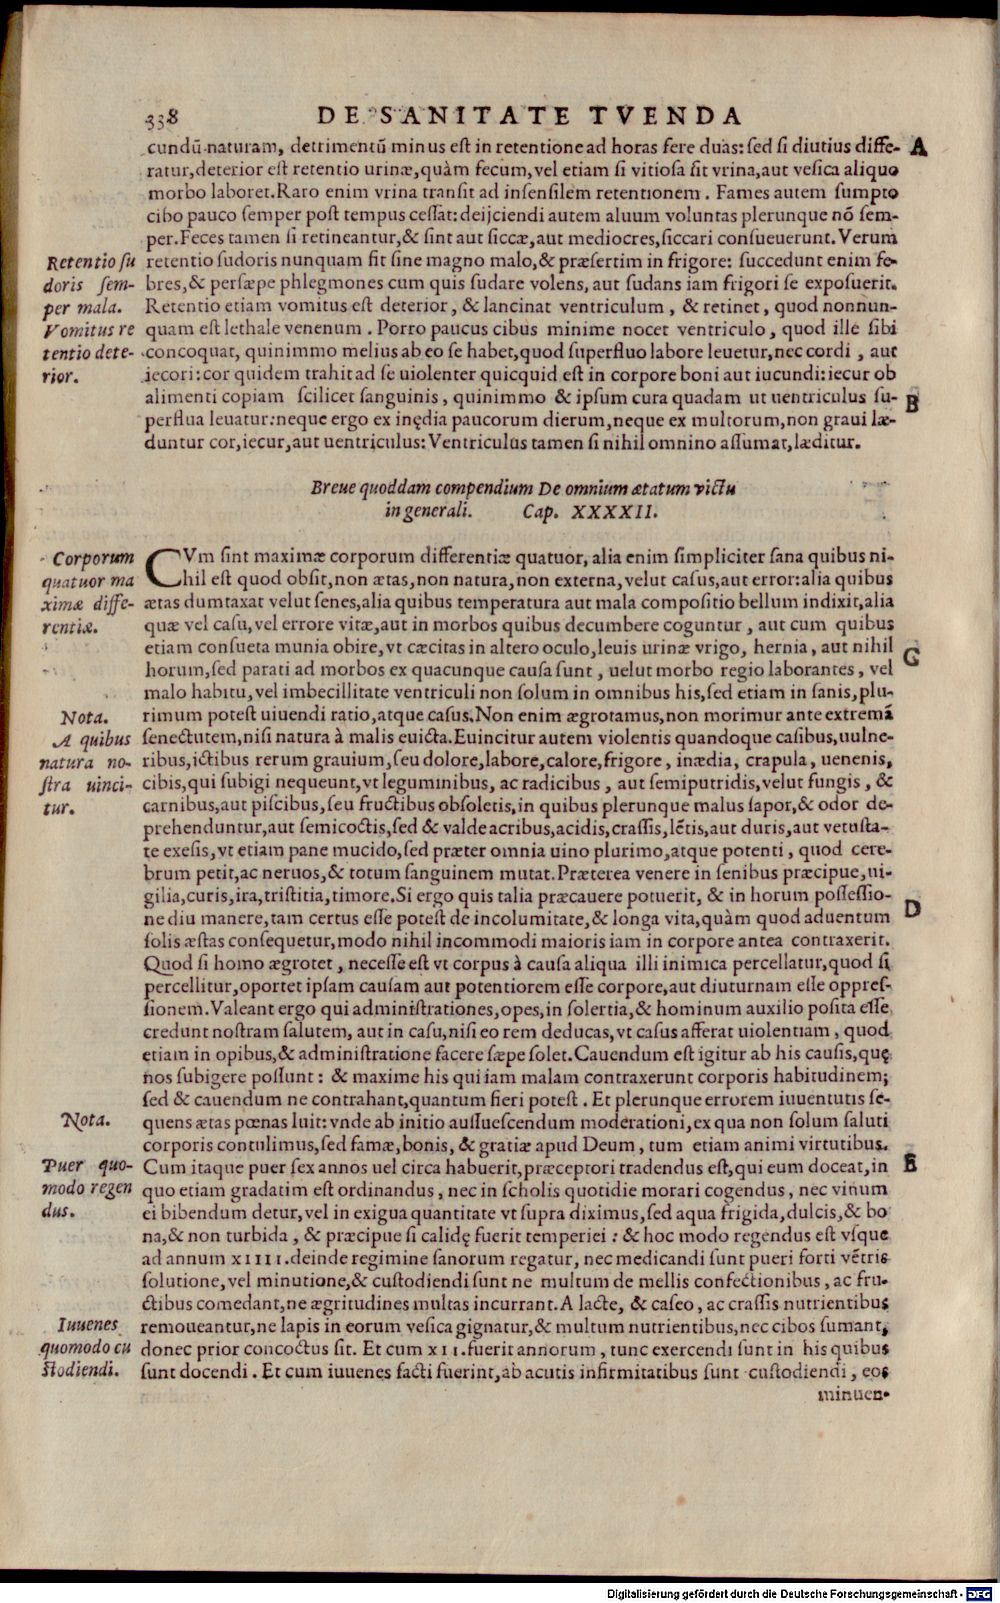 338 DE SANITATE TVENDA
cundū naturam, detrimentū minus est in retentione ad horas fere duas: sed si diutius diffe- A
ratur, deterior est retentio urinæ, quàm fecum, vel etiam si vitiosa sit vrina, aut vesica aliquo
morbo laboret. Raro enim vrina transit ad insensilem retentionem. Fames autem sumpto
cibo pauco semper post tempus cessat: deijciendi autem aluum voluntas plerunque nō sem-
per. Feces tamen si retineantur, & sint aut siccæ, aut mediocres, siccari consueuerunt. Verum
Retentio su
doris sem-
per mala.
Vomitus re
tentio dete-
rior.
retentio sudoris nunquam sit sine magno malo, & præsertim in frigore: succedunt enim fe-
bres, & persæpe phlegmones cum quis sudare volens, aut sudans iam frigori se exposuerit.
Retentio etiam vomitus est deterior, & lancinat ventriculum, & retinet, quod nonnun-
quam est lethale venenum. Porro paucus cibus minime nocet ventriculo, quod ille sibi
concoquat, quinimmo melius ab eo se habet, quod superfluo labore leuetur, nec cordi, aut
iecori: cor quidem trahit ad se uiolenter quicquid est in corpore boni aut iucundi: iecur ob
alimenti copiam scilicet sanguinis, quinimmo & ipsum cura quadam ut uentriculus su- B
perflua leuatur: neque ergo ex inędia paucorum dierum, neque ex multorum, non graui læ-
duntur cor, iecur, aut uentriculus: Ventriculus tamen si nihil omnino assumat, læditur.
Breue quoddam compendium De omnium ætatum victu
in generali. Cap. XXXXII.
Corporum
quatuor ma
ximæ diffe-
rentiæ.
CVm sint maximæ corporum differentiæ quatuor, alia enim simpliciter sana quibus ni-
hil est quod obsit, non ætas, non natura, non externa, velut casus, aut error: alia quibus
ætas dumtaxat velut senes, alia quibus temperatura aut mala compositio bellum indixit, alia
quæ vel casu, vel errore vitæ, aut in morbos quibus decumbere coguntur, aut cum quibus
etiam consueta munia obire, vt cæcitas in altero oculo, leuis urinæ vrigo, hernia, aut nihil
horum, sed parati ad morbos ex quacunque causa sunt, uelut morbo regio laborantes, vel G
malo habitu, vel imbecillitate ventriculi non solum in omnibus his, sed etiam in sanis, plu-
Nota.
A quibus
natura no-
stra uinci-
tur.
rimum potest uiuendi ratio, atque casus. Non enim ægrotamus, non morimur ante extremā
senectutem, nisi natura à malis euicta. Euincitur autem violentis quandoque casibus, uulne-
ribus, ictibus rerum grauium, seu dolore, labore, calore, frigore, inædia, crapula, uenenis,
cibis, qui subigi nequeunt, vt leguminibus, ac radicibus, aut semiputridis, velut fungis, &
carnibus, aut piscibus, seu fructibus obsoletis, in quibus plerunque malus sapor, & odor de-
prehenduntur, aut semicoctis, sed & valde acribus, acidis, crassis, lētis, aut duris, aut vetusta-
te exesis, vt etiam pane mucido, sed præter omnia uino plurimo, atque potenti, quod cere-
brum petit, ac neruos, & totum sanguinem mutat. Præterea venere in senibus præcipue, ui-
gilia, curis, ira, tristitia, timore. Si ergo quis talia præcauere potuerit, & in horum possessio-
ne diu manere, tam certus esse potest de incolumitate, & longa vita, quàm quod aduentum D
solis æstas consequetur, modo nihil incommodi maioris iam in corpore antea contraxerit.
Quod si homo ægrotet, necesse est vt corpus à causa aliqua illi inimica percellatur, quod si
percellitur, oportet ipsam causam aut potentiorem esse corpore, aut diuturnam esse oppres-
sionem. Valeant ergo qui administrationes, opes, in solertia, & hominum auxilio posita esse
credunt nostram salutem, aut in casu, nisi eo rem deducas, vt casus afferat uiolentiam, quod
etiam in opibus, & administratione facere sæpe solet. Cauendum est igitur ab his causis, quę
nos subigere possunt: & maxime his qui iam malam contraxerunt corporis habitudinem;
sed & cauendum ne contrahant, quantum fieri potest. Et plerunque errorem iuuentutis se-
Nota.
quens ætas pœnas luit: vnde ab initio assuescendum moderationi, ex qua non solum saluti
corporis contulimus, sed famæ, bonis, & gratiæ apud Deum, tum etiam animi virtutibus.
Puer quo-
modo regen
dus.
Cum itaque puer sex annos uel circa habuerit, præceptori tradendus est, qui eum doceat, in E
quo etiam gradatim est ordinandus, nec in scholis quotidie morari cogendus, nec vinum
ei bibendum detur, vel in exigua quantitate vt supra diximus, sed aqua frigida, dulcis, & bo
na, & non turbida, & præcipue si calidę fuerit temperiei: & hoc modo regendus est vsque
ad annum XIIII. deinde regimine sanorum regatur, nec medicandi sunt pueri forti vētris
solutione, vel minutione, & custodiendi sunt ne multum de mellis confectionibus, ac fru-
ctibus comedant, ne ægritudines multas incurrant. A lacte, & caseo, ac crassis nutrientibus
Iuuenes
quomodo cu
stodiendi.
remoueantur, ne lapis in eorum vesica gignatur, & multum nutrientibus, nec cibos sumant,
donec prior concoctus sit. Et cum XII. fuerit annorum, tunc exercendi sunt in his quibus
sunt docendi. Et cum iuuenes facti fuerint, ab acutis infirmitatibus sunt custodiendi, eos
minuen-
Digitalisierung gefördert durch die Deutsche Forschungsgemeinschaft - DFG